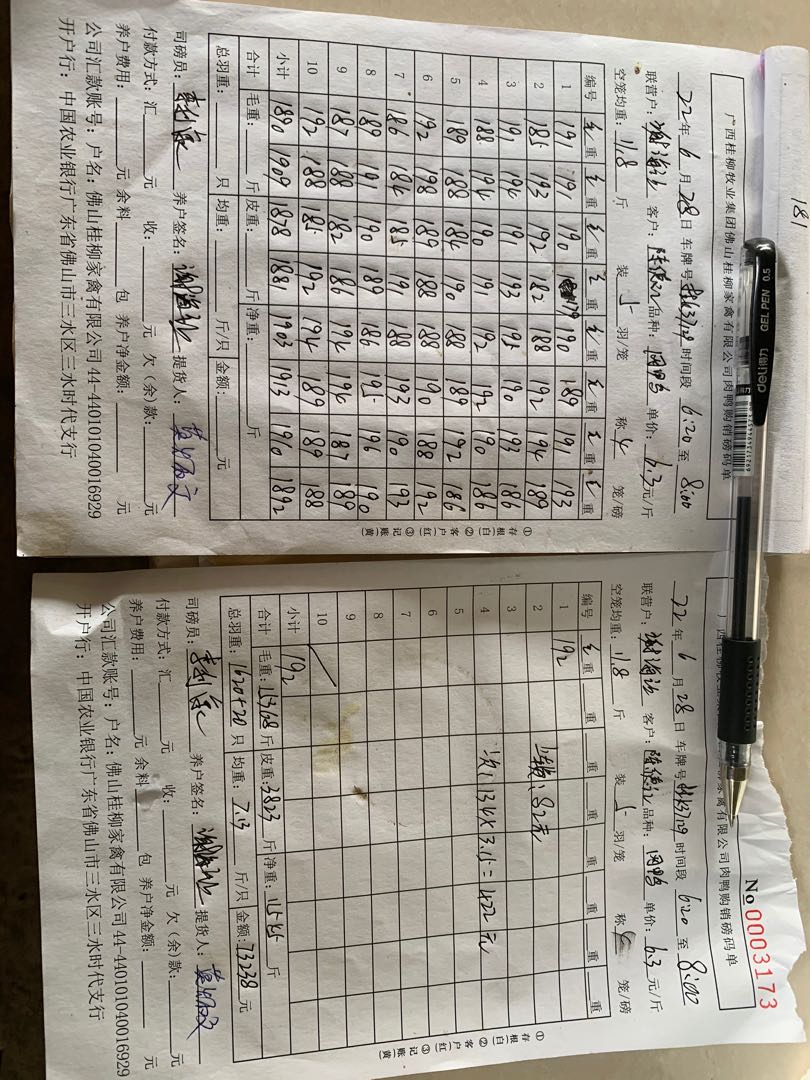 181
广西桂柳牧业集团佛山桂柳家禽有限公司肉鸭购销磅码单
22年6月28日 车牌号 时间段 6:20 至 8:00
联营户: 客户: 品种: 单价:6.3元/斤
空笼均重:11.8斤 装 5 羽/笼 称 4 笼/磅
编号 毛重 毛重 毛重 毛重 毛重 毛重 毛重 毛重
1 191 191 190 179 190 189 191 193
2 185 193 192 182 188 192 194 189
3 191 194 191 193 195 190 193 186
4 188 194 190 191 192 192 190 186
5 189 188 184 190 188 189 192 186
6 192 198 189 188 188 190 188 192
7 186 184 185 191 188 193 190 193
8 189 191 190 189 186 195 196 190
9 187 188 182 186 194 194 187 189
10 192 188 185 192 194 189 189 188
小计 1890 1909 1878 1881 1903 1913 1910 1892
合计 毛重: 斤 皮重: 斤 净重: 斤
总羽重: 只 均重: 斤/只 金额: 元
司磅员: 养户签名: 提货人:
付款方式:汇 元 收: 元 欠(余)款: 元
养户费用: 元 余料 包 养户净金额: 元
公司汇款账号:户名:佛山桂柳家禽有限公司44-440101040016929
开户行:中国农业银行广东省佛山市三水区三水时代支行
①存根(白) ②客户(红) ③记账(黄)
deli得力 GEL PEN 0.5
No 0003173
家禽有限公司肉鸭购销磅码单
22年6月28日 车牌号 时间段 6:20 至 8:00
联营户: 客户: 品种: 单价:6.3元/斤
空笼均重:11.8斤 装 5 羽/笼 称 4 笼/磅
编号 毛重 重 重 重 重 重 重
1 192
2 82元
3
4 次:134×3.15=422元
5
6
7
8
9
10
小计 192
合计 毛重:15368斤 皮重:3823斤 净重:11545斤
总羽重:1620+20只 均重:7.13斤/只 金额:73238元
司磅员: 养户签名: 提货人:
付款方式:汇 元 收: 元 欠(余)款: 元
养户费用: 元 余料 包 养户净金额: 元
公司汇款账号:户名:佛山桂柳家禽有限公司44-440101040016929
开户行:中国农业银行广东省佛山市三水区三水时代支行
①存根(白) ②客户(红) ③记账(黄)